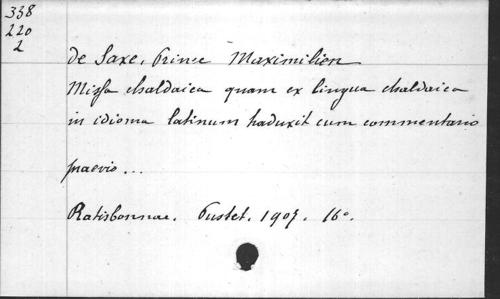 338
220
2
de Saxe, Prince Maximilien
Missa chaldaica quam ex lingua chaldaica
in idioma latinum traduxit cum commentario
praevio ...
Ratisbonnae. Pustet. 1907. 16°.